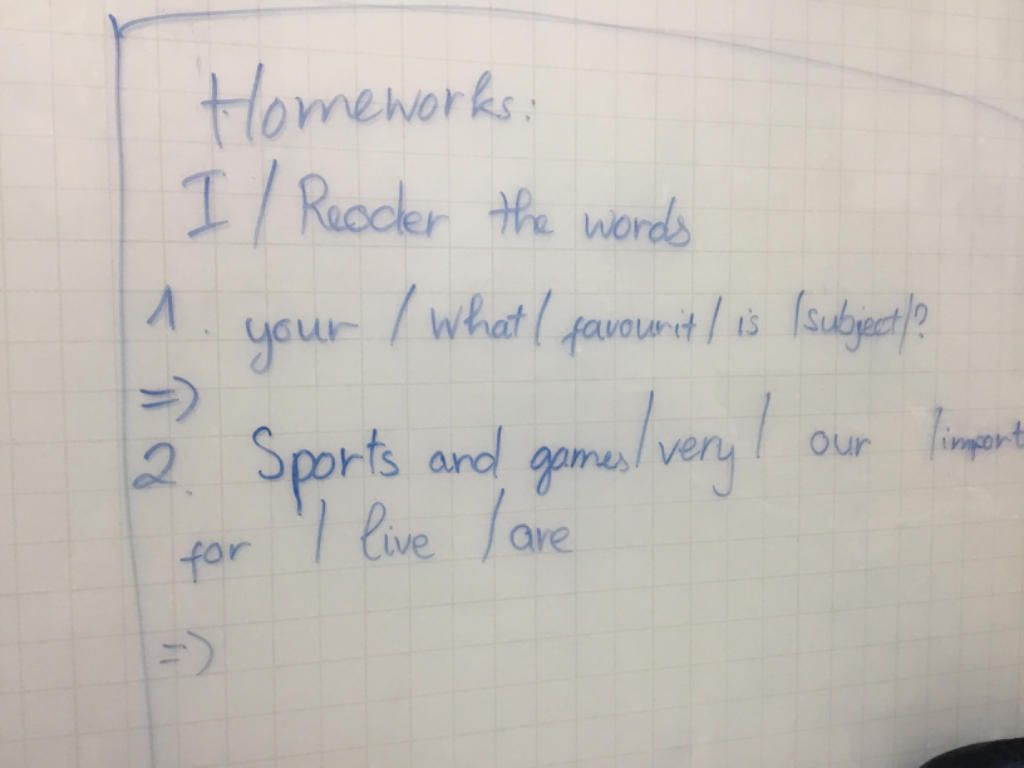 Homeworks:
I / Reoder the words
1. your / What / favourit / is / subject /?
=>
2. Sports and games / very / our / import
for / live / are
=>